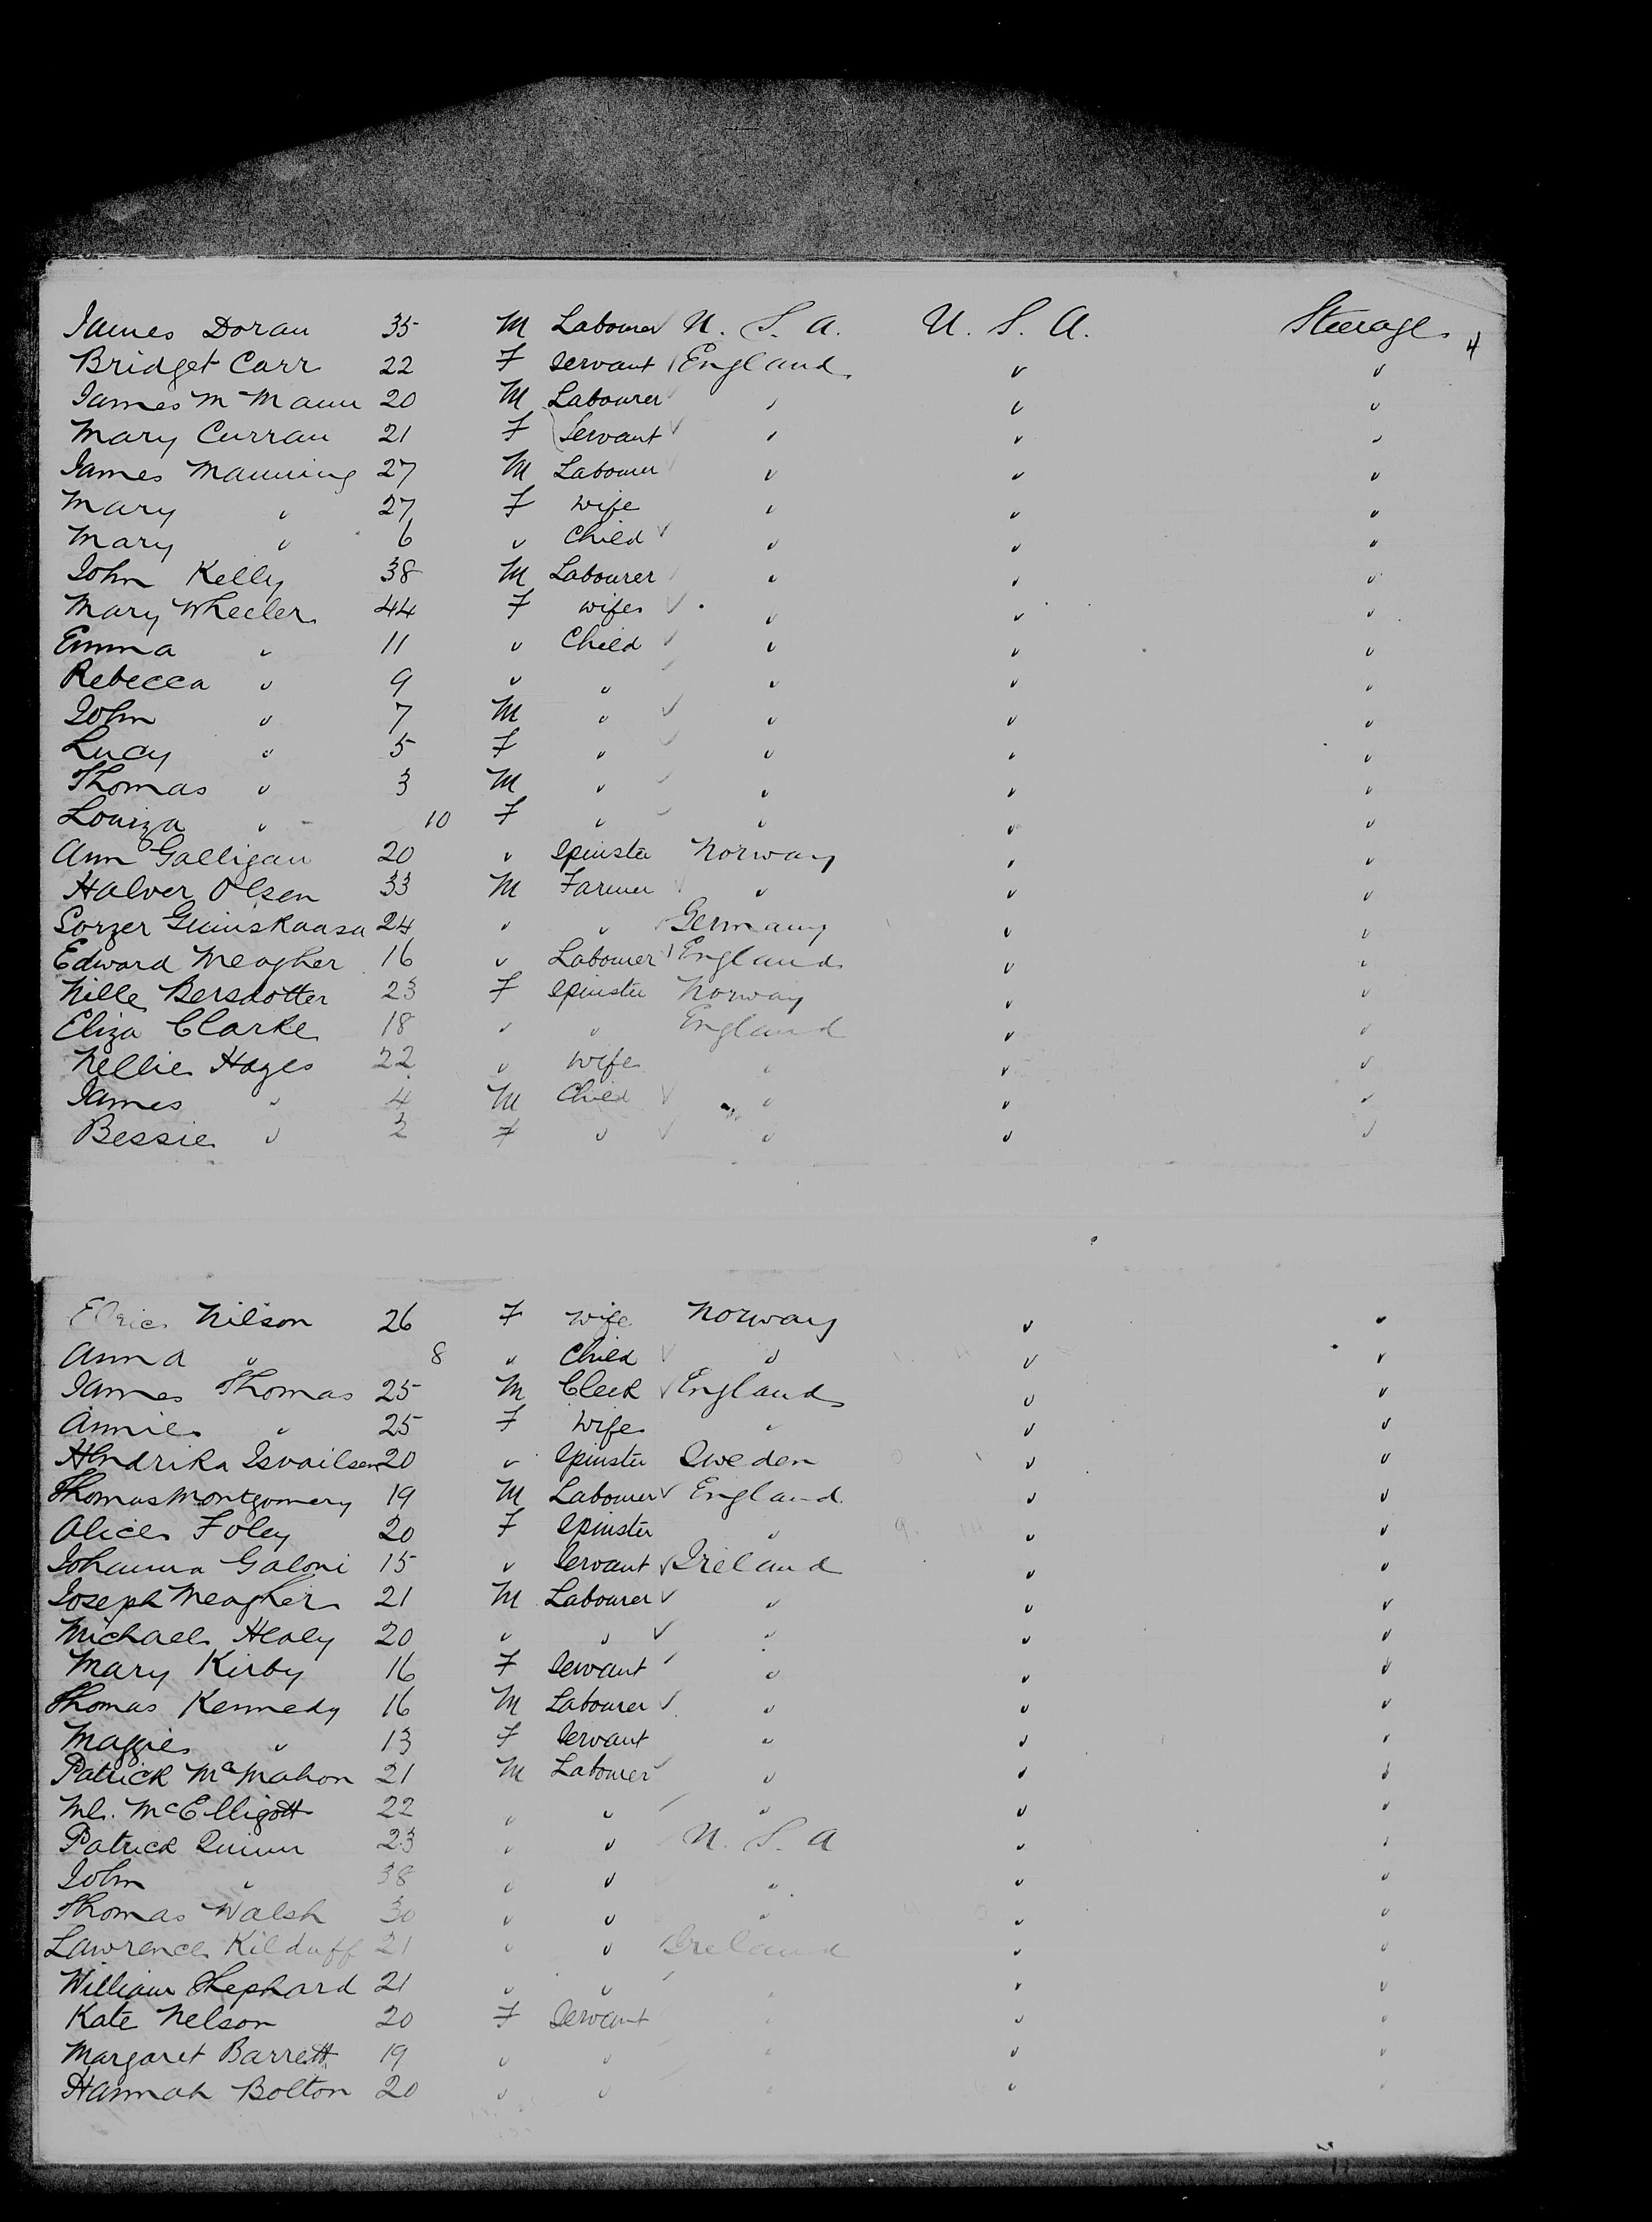 James Doran 35 M Labourer U. S. A. U. S. A. Steerage 4
Bridget Carr 22 F Servant England " "
James McMann 20 M Labourer " " "
Mary Curran 21 F Servant " " "
James Manning 27 M Labourer " " "
Mary " 27 F Wife " " "
Mary " 6 " Child " " "
John Kelly 38 M Labourer " " "
Mary Wheeler 44 F Wife " " "
Emma " 11 " Child " " "
Rebecca " 9 " " " " "
John " 7 M " " " "
Lucy " 5 F " " " "
Thomas " 3 M " " " "
Louiza " 10 F " " " "
Ann Galligan 20 " Spinster Norway " "
Halver Olsen 33 M Farmer " " "
24 " " Germany " "
Edward Meagher 16 " Labourer England " "
Nille Bersdotter 23 F Spinster Norway " "
Eliza Clarke 18 " " England " "
Nellie Hayes 22 " Wife " " "
James " 4 M Child " " "
Bessie " 2 F " " " "
Nilson 26 F Wife Norway " "
Anna " 8 " Child " " "
James Thomas 25 M Clerk England " "
Annie " 25 F Wife " " "
Hendrika 20 " Spinster Sweden " "
Thomas Montgomery 19 M Labourer England " "
Alice Foley 20 F Spinster " " "
Johanna Galoni 15 " Servant Ireland " "
Joseph Meagher 21 M Labourer " " "
Michael Healy 20 " " " " "
Mary Kirby 16 F Servant " " "
Thomas Kennedy 16 M Labourer " " "
Maggie " 13 F Servant " " "
Patrick McMahon 21 M Labourer " " "
Ml. McElligott 22 " " " " "
Patrick Quinn 23 " " U. S. A " "
John " 38 " " " " "
Thomas Walsh 30 " " " " "
Lawrence Kilduff 21 " " Ireland " "
William Shephard 21 " " " " "
Kate Nelson 20 F Servant " " "
Margaret Barrett 19 " " " " "
Hannah Bolton 20 " " " " "